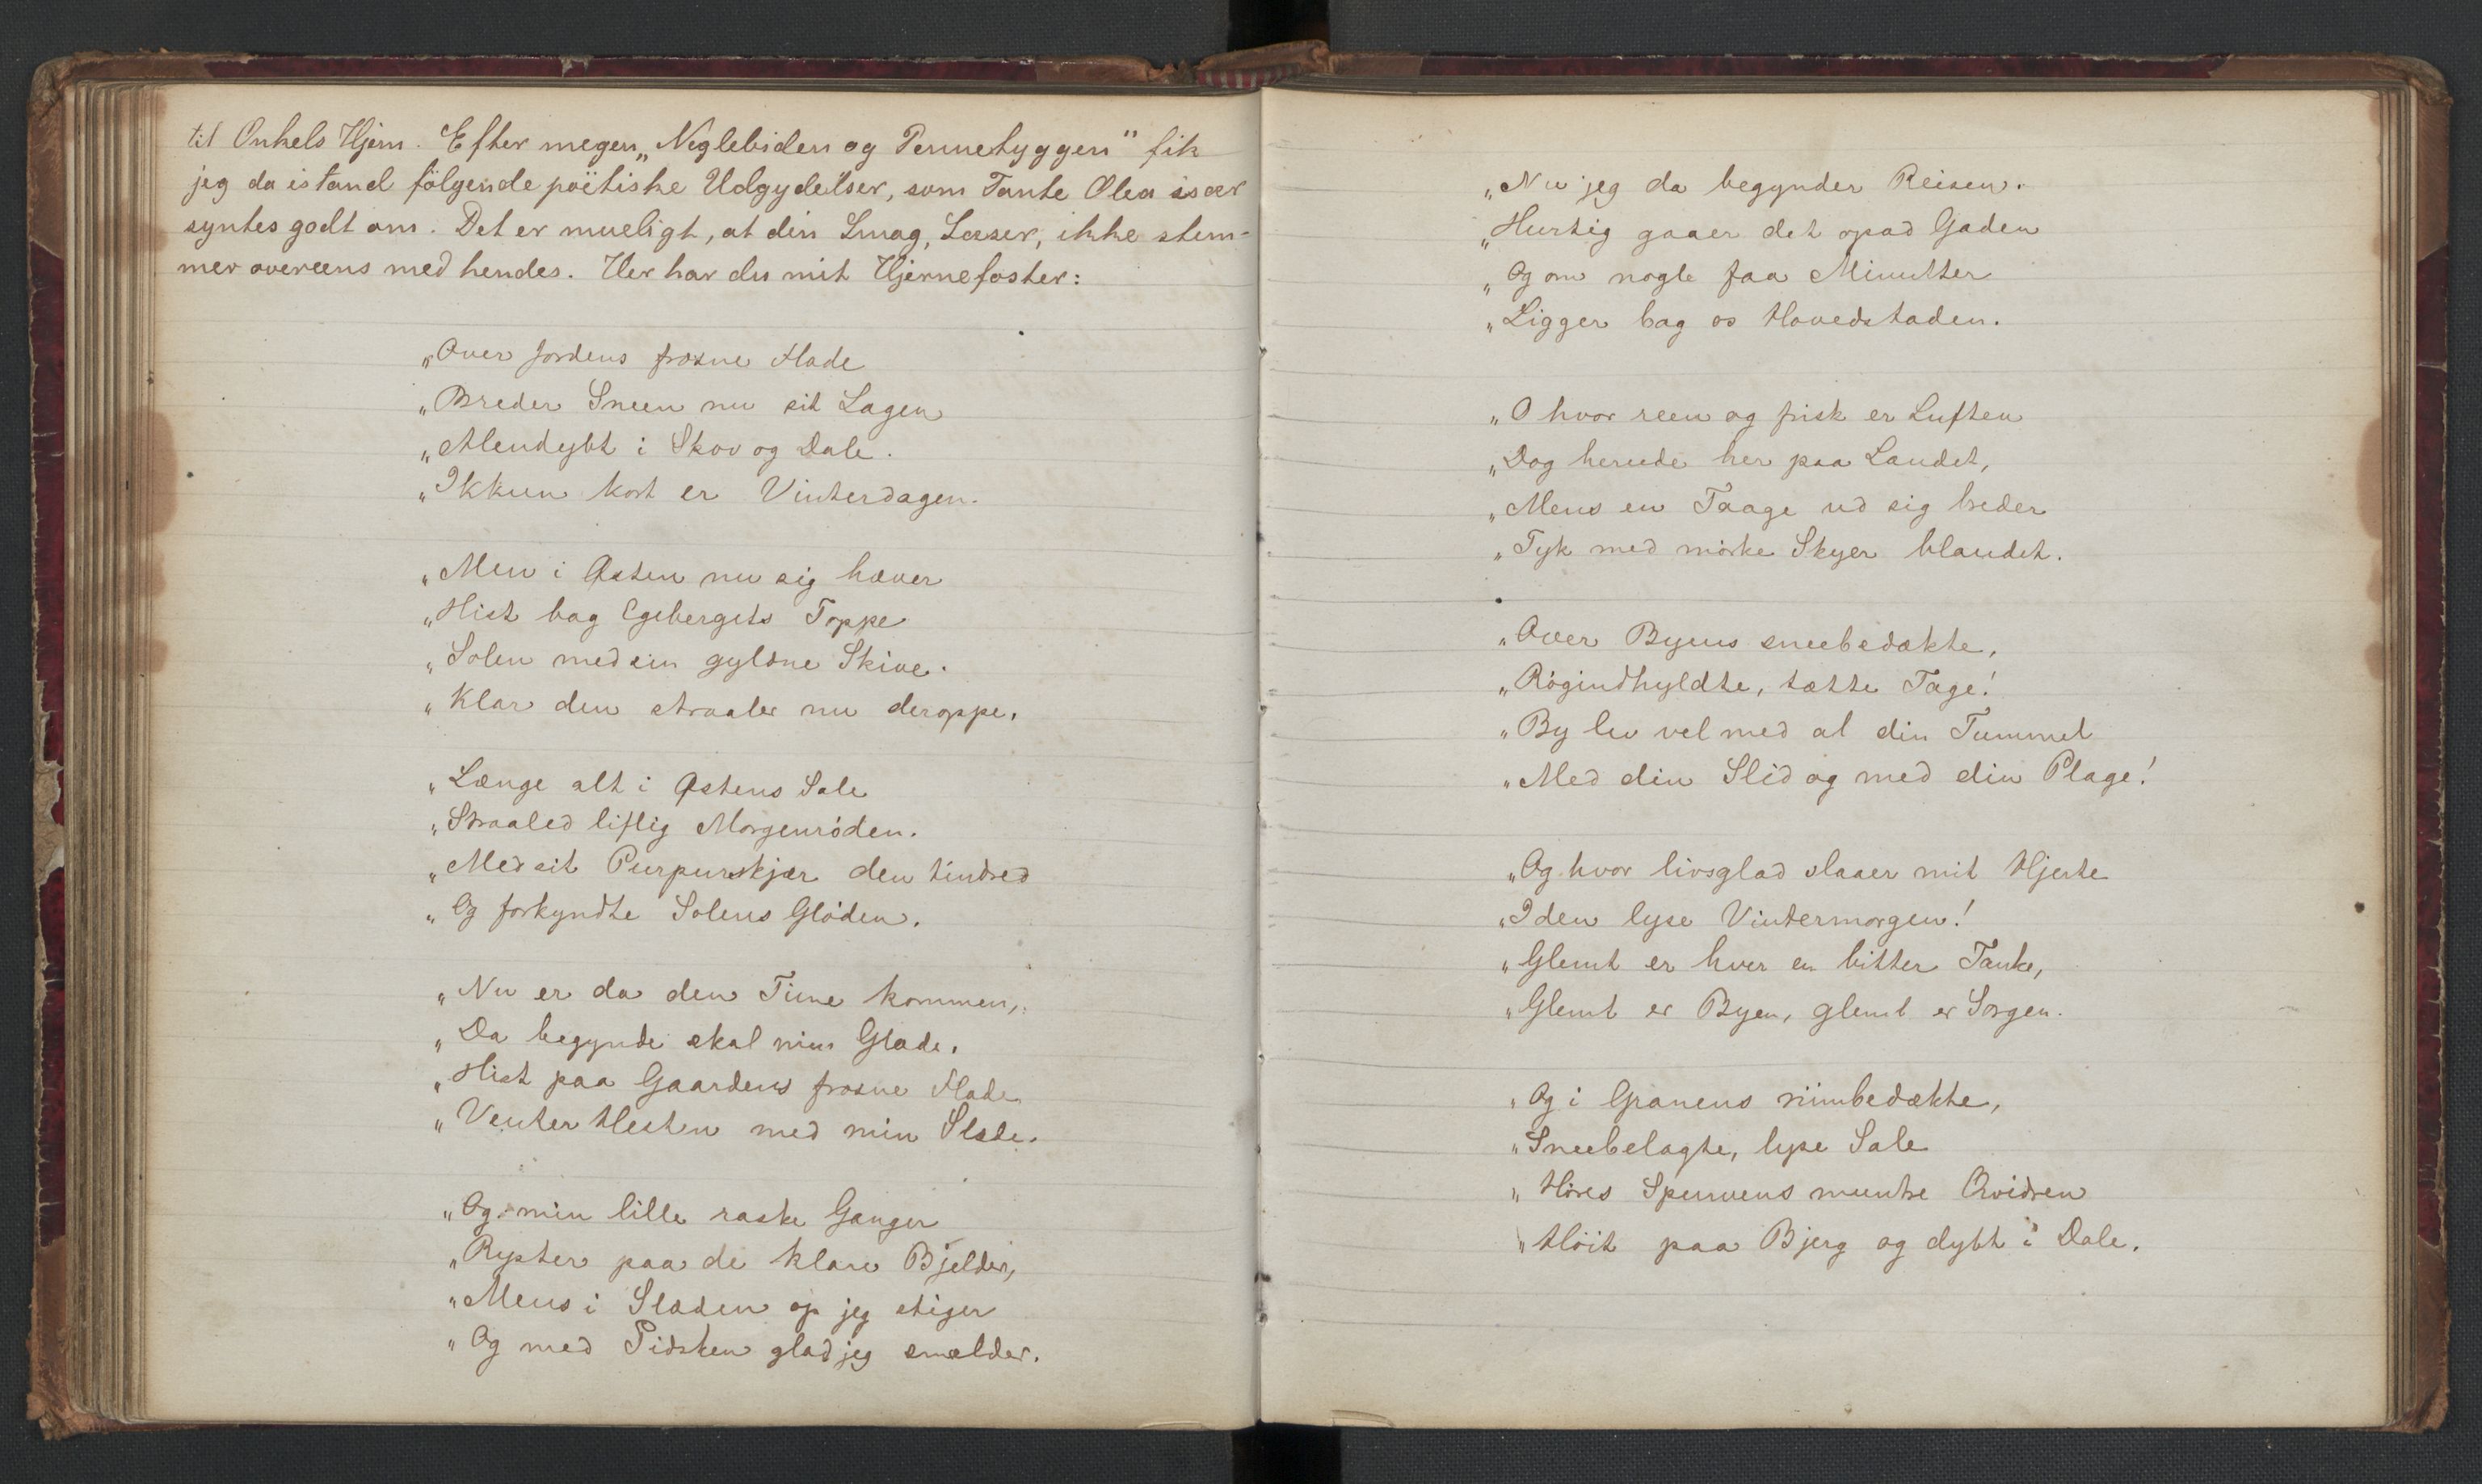 til Onkels Hjem. Efter megen „Neglebiden og Pennetyggen" fik
jeg da istand følgende poëtiske Udgydelser, som Tante Olea især
syntes godt om. Det er mueligt, at din Smag, Læser, ikke stem-
mer overeens med hendes. Her har du mit Hjernefoster:
„Over Jordens frosne Flade
„Breder Sneen nu sit Lagen
„Alendybt i Skov og Dale.
„Ikkun kort er Vinterdagen.
„Men i Østen nu sig hæver
„Hist bag Egebergets Toppe
„Solen med sin gyldne Skive.
„Klar den straaler nu deroppe.
„Længe alt i Østens Sale
„Straaled liflig Morgenrøden.
„Med sit Purpurskjær den tindred
„Og forkyndte Solens Gløden.
„Nu er da den Time kommen,
„Da begynde skal min Glæde.
„Hist paa Gaardens frosne Flade
„Venter Hesten med min Slæde.
„Og min lille raske Ganger
„Ryster paa de klare Bjelder,
„Mens i Slæden op jeg stiger
„Og med Pidsken glad jeg smælder.
„Nu jeg da begynder Reisen.
„Hurtig gaaer det opad Gaden
„Og om nogle faa Minutter
„Ligger bag os Hovedstaden.
„O hvor reen og frisk er Luften
„Dog herude her paa Landet,
„Mens en Taage ud sig breder
„Tyk med mörke Skyer blandet.
„Over Byens sneebedækte,
„Røgindhyldte, tætte Tage!
„By lev vel med al din Tummel
„Med din Slid og med din Plage!
„Og hvor livsglad slaaer mit Hjerte
„I den lyse Vintermorgen!
„Glemt er hver en bitter Tanke,
„Glemt er Byen, glemt er Sorgen.
„Og i Granens riimbedækte,
„Sneebelagte, lyse Sale
„Høres Spurvens muntre Qvidren
„Høit paa Bjerg og dybt i Dale.